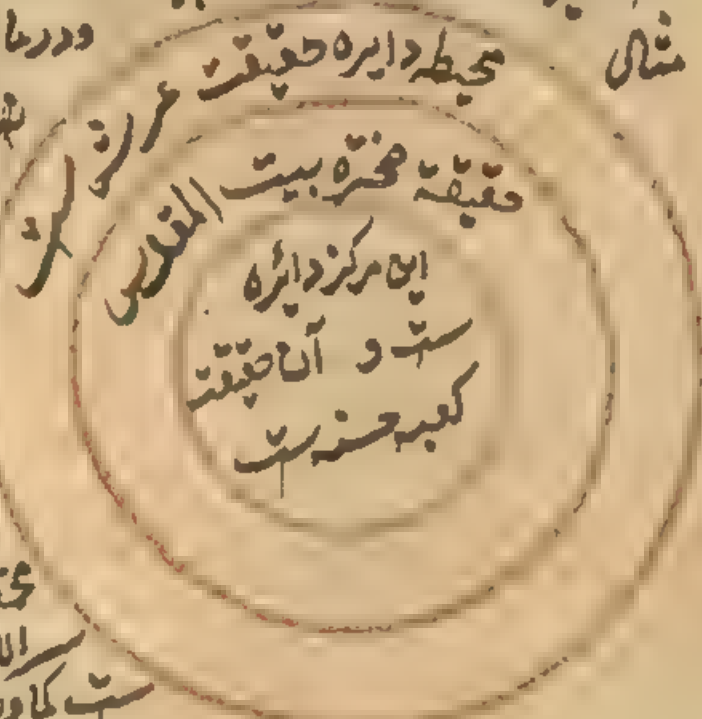 مثال
ودرما
محیط دایره حقیقت عرش است
حقیقة صخرۀ بیت المقدس
این مرکز دائره
ست و آن حقیقت
کعبه حسنه ست